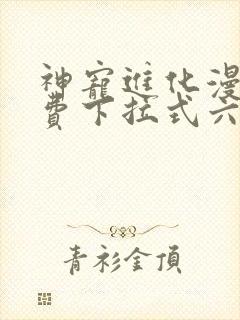 神寵進化漫
費下拉式六
青衫金頂